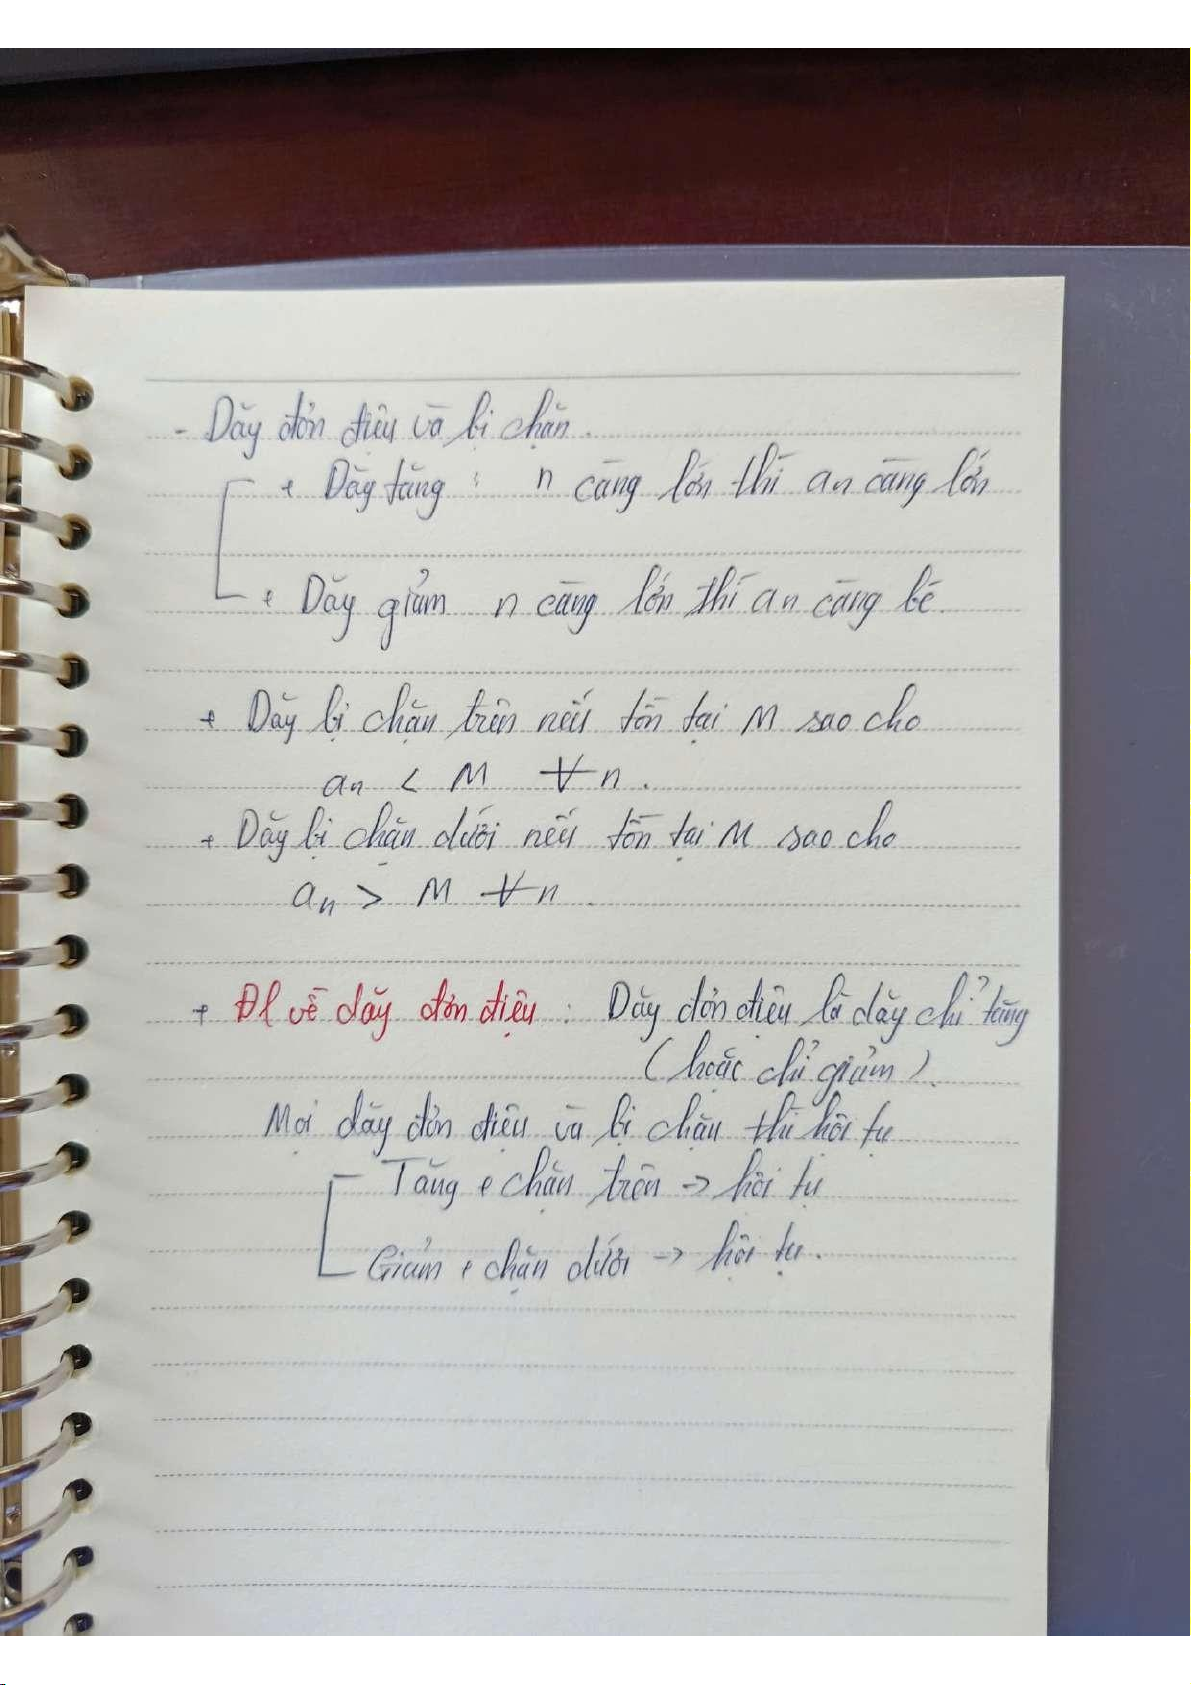 - Dãy đơn điệu và bị chặn.
+ Dãy tăng : n càng lớn thì an càng lớn
+ Dãy giảm n càng lớn thì an càng bé.
+ Dãy bị chặn trên nếu tồn tại M sao cho
an < M ∀n.
+ Dãy bị chặn dưới nếu tồn tại M sao cho
an > M ∀n.
+ Đl về dãy đơn điệu : Dãy đơn điệu là dãy chỉ tăng
(hoặc chỉ giảm).
Mọi dãy đơn điệu và bị chặn thì hội tụ
Tăng + chặn trên -> hội tụ
Giảm + chặn dưới -> hội tụ.